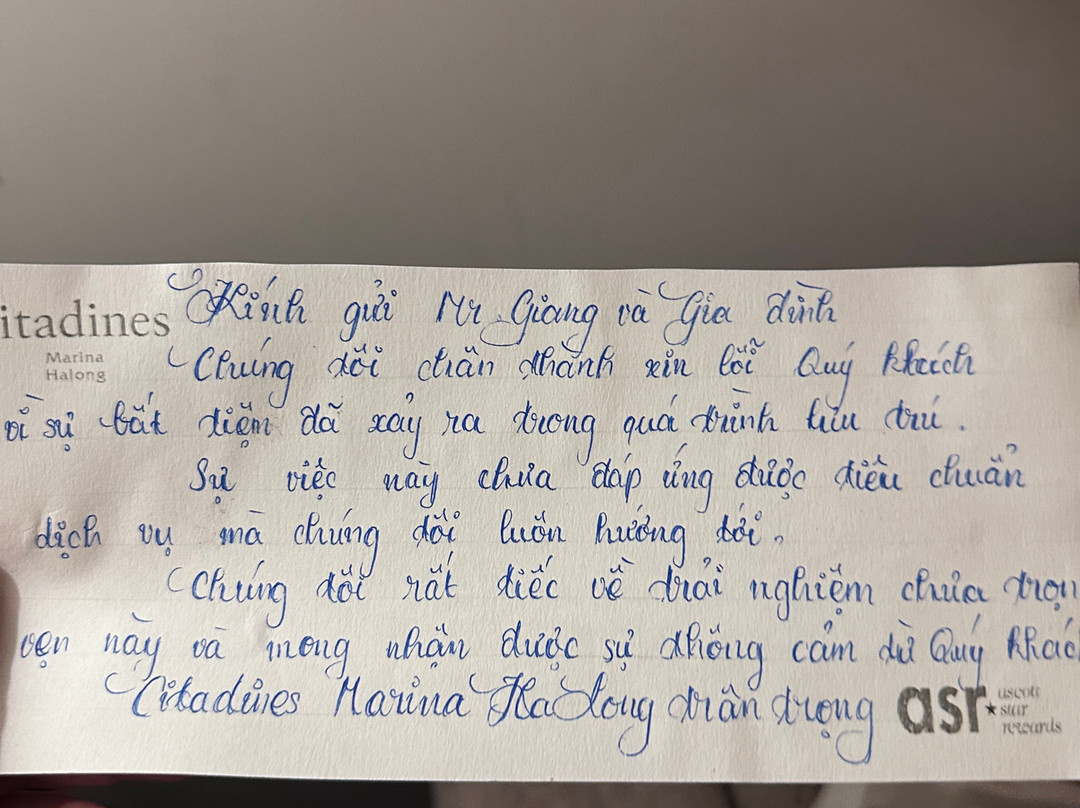 Kính gửi Mr Giang và Gia đình
itadines
Marina
Halong
Chúng tôi chân thành xin lỗi Quý khách
vì sự bất tiện đã xảy ra trong quá trình lưu trú.
Sự việc này chưa đáp ứng được tiêu chuẩn
dịch vụ mà chúng tôi luôn hướng tới.
Chúng tôi rất tiếc về trải nghiệm chưa trọn
vẹn này và mong nhận được sự thông cảm từ Quý khác
Citadines Marina Ha Long trân trọng
asr
ascott
star
rewards